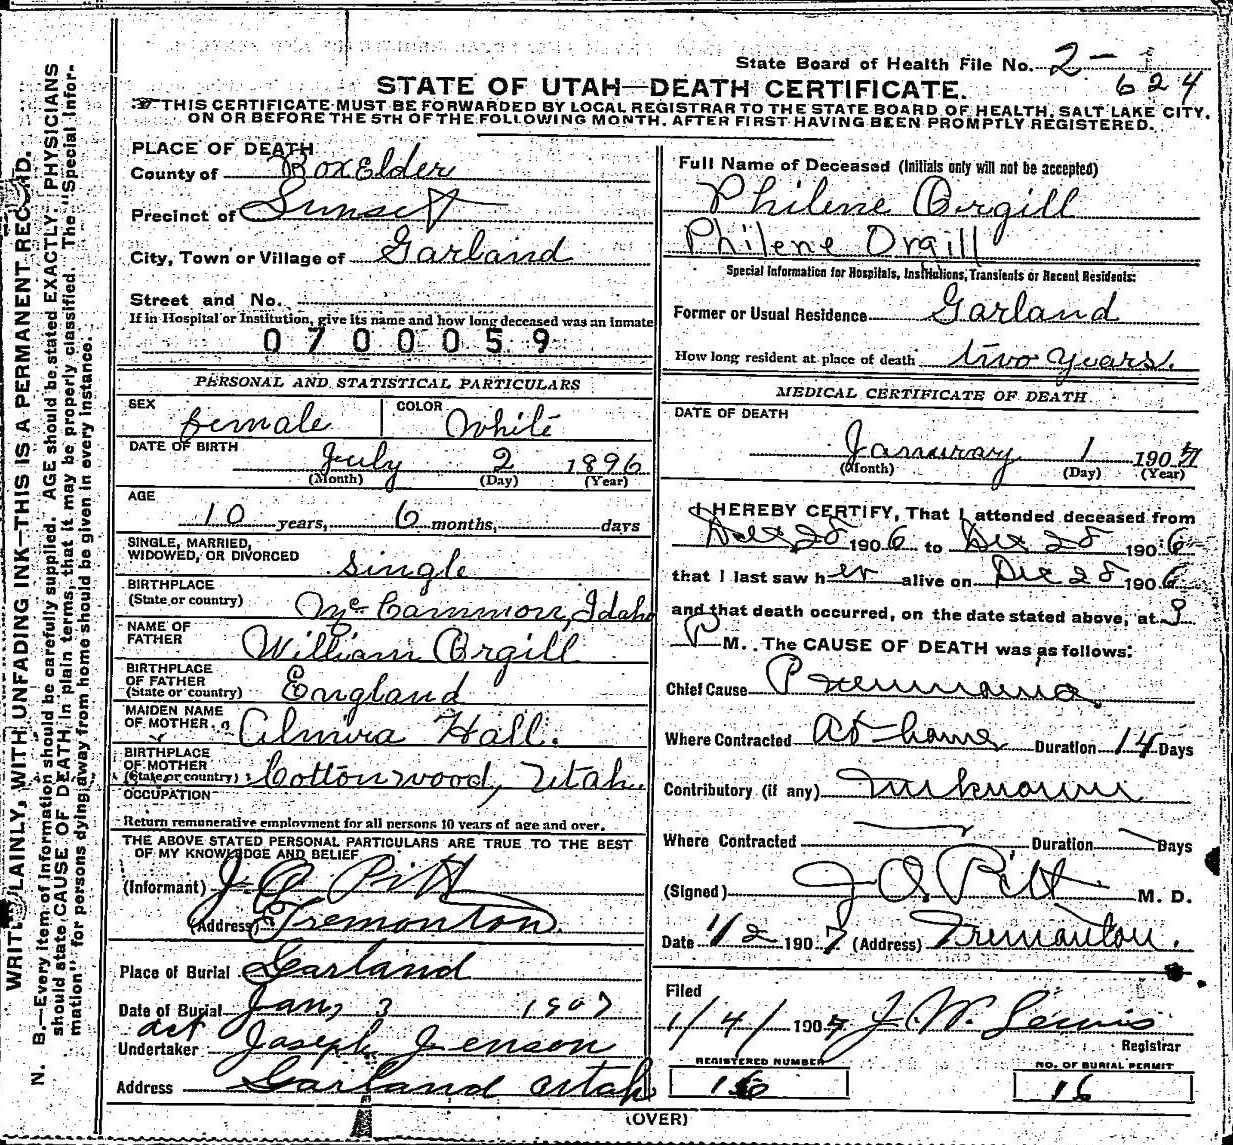 State Board of Health File No. 2-
624
STATE OF UTAH—DEATH CERTIFICATE.
THIS CERTIFICATE MUST BE FORWARDED BY LOCAL REGISTRAR TO THE STATE BOARD OF HEALTH, SALT LAKE CITY,
ON OR BEFORE THE 5TH OF THE FOLLOWING MONTH, AFTER FIRST HAVING BEEN PROMPTLY REGISTERED.
WRITE PLAINLY, WITH UNFADING INK—THIS IS A PERMANENT RECORD.
N. B.—Every item of information should be carefully supplied. AGE should be stated EXACTLY. PHYSICIANS
should state CAUSE OF DEATH in plain terms, that it may be properly classified. The "Special Infor-
mation" for persons dying away from home should be given in every instance.
PLACE OF DEATH
County of Box Elder
Precinct of Sunset
City, Town or Village of Garland
Street and No.
If in Hospital or Institution, give its name and how long deceased was an inmate
0700059
PERSONAL AND STATISTICAL PARTICULARS
SEX female COLOR White
DATE OF BIRTH July 2 1896
(Month) (Day) (Year)
AGE
10 years, 6 months, days
SINGLE, MARRIED,
WIDOWED, OR DIVORCED single
BIRTHPLACE
(State or country) McCammon, Idaho
NAME OF
FATHER William Orgill
BIRTHPLACE
OF FATHER
(State or country) England
MAIDEN NAME
OF MOTHER Almira Hall.
BIRTHPLACE
OF MOTHER
(State or country) Cottonwood, Utah.
OCCUPATION
Return remunerative employment for all persons 10 years of age and over.
THE ABOVE STATED PERSONAL PARTICULARS ARE TRUE TO THE BEST
OF MY KNOWLEDGE AND BELIEF
(Informant) J. O. Pitt
(Address) Tremonton.
Place of Burial Garland
Date of Burial Jan, 3 1907
act
Undertaker Joseph Jenson
Address Garland Utah
Full Name of Deceased (Initials only will not be accepted)
Philene Orgill
Philene Orgill
Special Information for Hospitals, Institutions, Transients or Recent Residents:
Former or Usual Residence Garland
How long resident at place of death two years.
MEDICAL CERTIFICATE OF DEATH
DATE OF DEATH
January 1 1907
(Month) (Day) (Year)
I HEREBY CERTIFY, That I attended deceased from
Dec 28 1906 to Dec 28 1906
that I last saw her alive on Dec 28 1906
and that death occurred, on the date stated above, at 9
P M. The CAUSE OF DEATH was as follows:
Chief Cause Pneumonia
Where Contracted At home Duration 14 Days
Contributory (if any) unknown
Where Contracted Duration Days
(Signed) J. O. Pitt M. D.
Date 1/2 1907 (Address) Tremonton.
Filed
1/4/ 1907 J. W. Lewis
Registrar
REGISTERED NUMBER
16
NO. OF BURIAL PERMIT
16
(OVER)